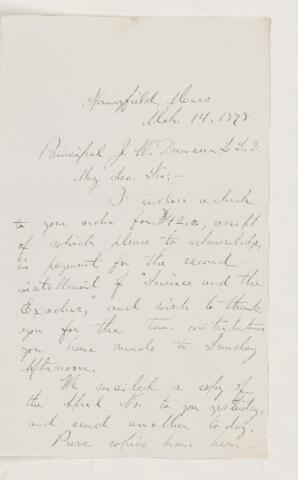 Springfield, Mass
Mch. 14. 1878
Principal J. W. Dawson LL.D.
My dear Sir:-
I inclose a check
to your order for $42.00, receipt
of which please to acknowledge,
in payment for the second
installment of "Science and the
Exodus," and wish to thank
you for the two contributions
you have made to Sunday
Afternoon.
We mailed a copy of
the April No. to you yesterday,
and send another to day.
Press copies have been